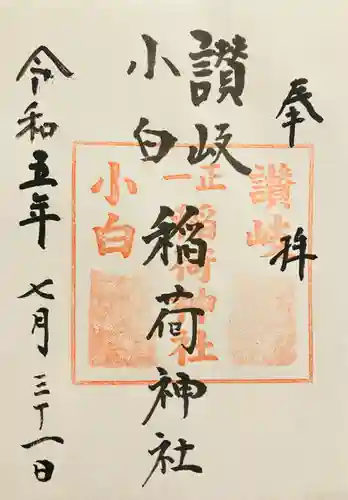 奉拝
讃岐
小白
稲荷神社
令和五年七月三十一日
讃岐
正一
稲荷神社
小白